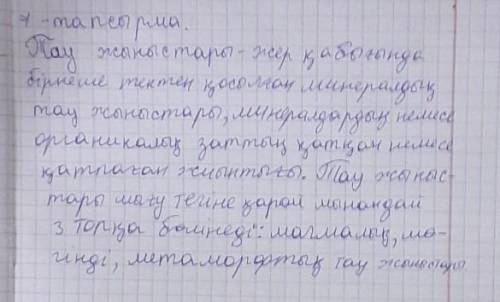 7-тапсырма.
Тау жыныстары-жер қабығында
бірнеше тектен қосылған минералдық
тау жыныстары, минералдардың немесе
органикалық заттың қатқан немесе
қатпаған жиынтығы. Тау жыныс-
тары шығу тегіне қарай мынандай
3 топқа бөлінеді: магмалық, шө-
гінді, метаморфтық тау жыныстары